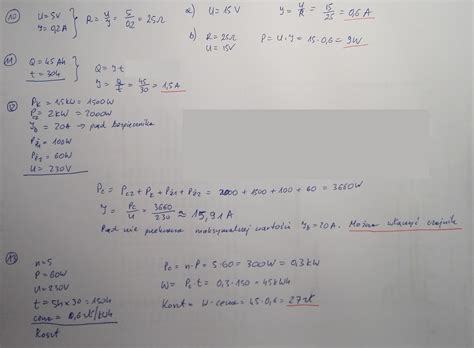 10) U=5V
Y=0,2A } R = U/Y = 5/0,2 = 25Ω
a) U=15V Y = U/R = 15/25 = 0,6A
b) R=25Ω
U=15V P=U·Y = 15·0,6 = 9W
11) Q=45Ah
t=30h } Q=Y t
Y = Q/t = 45/30 = 1,5A
12) Pk = 1,5kW = 1500W
= 2kW = 2000W
Yb = 20A → prąd bezpiecznika
Pż1 = 100W
Pż2 = 60W
U = 230V
Pc = Pcz + Pk + Pż1 + Pż2 = 2000 + 1500 + 100 + 60 = 3660W
Y = Pc/U = 3660/230 ≈ 15,91A
Prąd nie przekracza maksymalnej wartości Yb=20A. Można włączyć czajnik
13) n=5
P=60W
U=230V
t = 5h×30 = 150h
cena = 0,6zł/kWh
Koszt
Pc = n·P = 5·60 = 300W = 0,3kW
W = Pc·t = 0,3·150 = 45kWh
Koszt = W·cena = 45·0,6 = 27zł